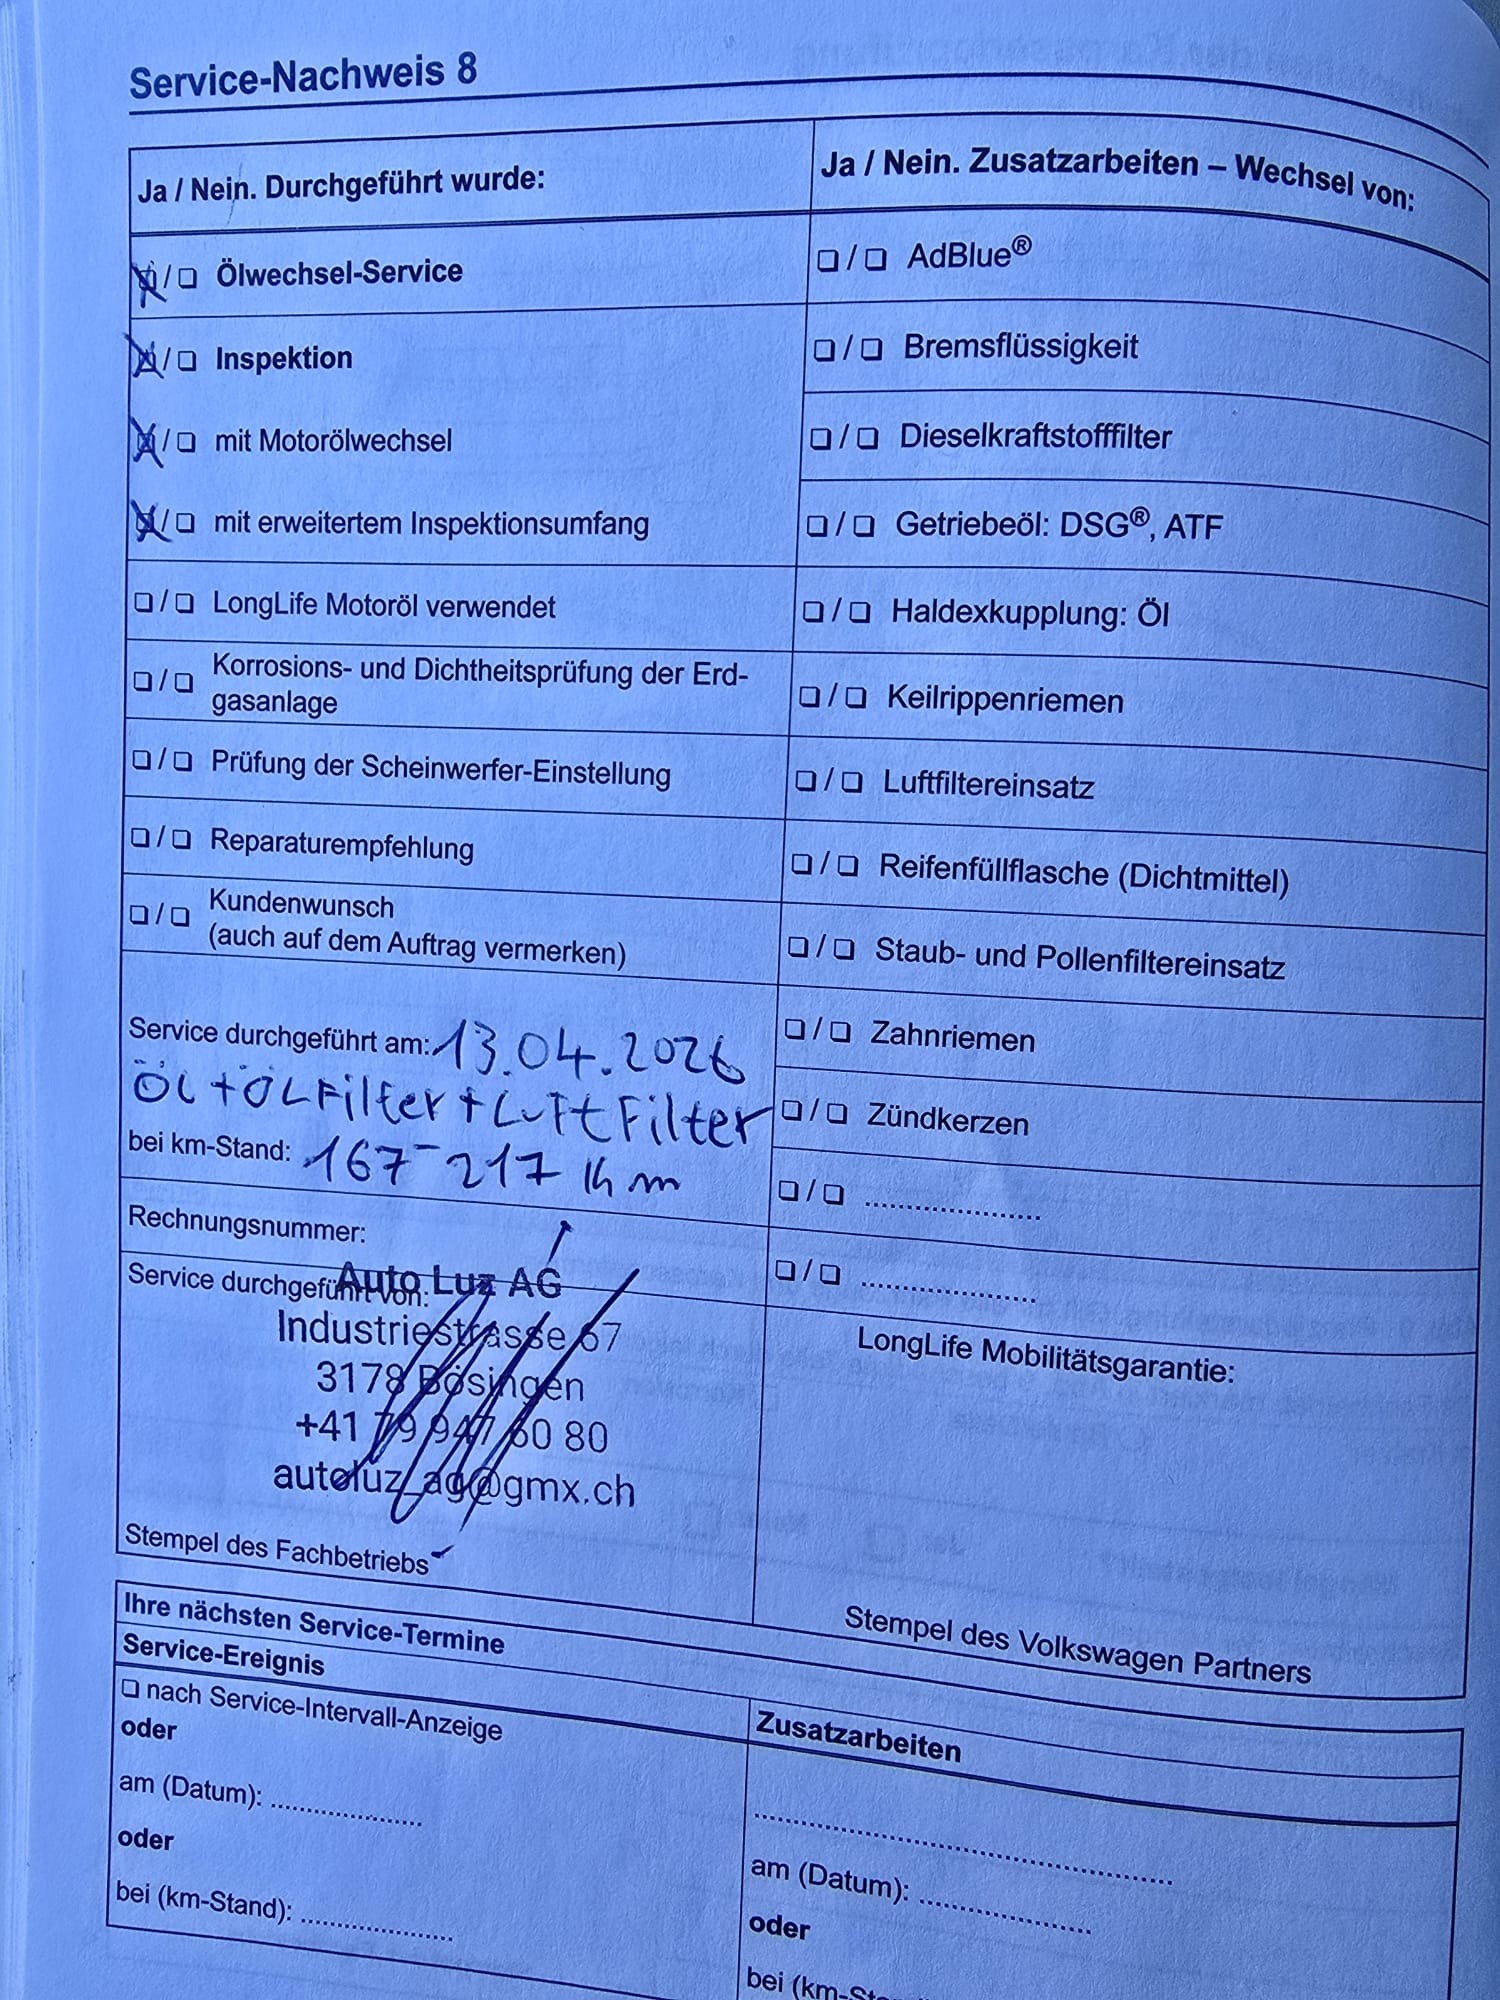 Service-Nachweis 8
Ja / Nein. Durchgeführt wurde:
☒ / ❏ Ölwechsel-Service
☒ / ❏ Inspektion
☒ / ❏ mit Motorölwechsel
☒ / ❏ mit erweitertem Inspektionsumfang
❏ / ❏ LongLife Motoröl verwendet
❏ / ❏ Korrosions- und Dichtheitsprüfung der Erd-
gasanlage
❏ / ❏ Prüfung der Scheinwerfer-Einstellung
❏ / ❏ Reparaturempfehlung
❏ / ❏ Kundenwunsch
(auch auf dem Auftrag vermerken)
Service durchgeführt am: 13.04.2026
ÖL + ÖLFilter + LuftFilter
bei km-Stand: 167-217 km
Rechnungsnummer:
Service durchgeführt von:
Auto Luz AG
Industriestrasse 67
3178 Bösingen
+41 79 947 60 80
autoluz_ag@gmx.ch
Stempel des Fachbetriebs
Ja / Nein. Zusatzarbeiten – Wechsel von:
❏ / ❏ AdBlue®
❏ / ❏ Bremsflüssigkeit
❏ / ❏ Dieselkraftstofffilter
❏ / ❏ Getriebeöl: DSG®, ATF
❏ / ❏ Haldexkupplung: Öl
❏ / ❏ Keilrippenriemen
❏ / ❏ Luftfiltereinsatz
❏ / ❏ Reifenfüllflasche (Dichtmittel)
❏ / ❏ Staub- und Pollenfiltereinsatz
❏ / ❏ Zahnriemen
❏ / ❏ Zündkerzen
❏ / ❏ ......................
❏ / ❏ ......................
LongLife Mobilitätsgarantie:
Stempel des Volkswagen Partners
Ihre nächsten Service-Termine
Service-Ereignis
❏ nach Service-Intervall-Anzeige
oder
am (Datum): ...................
oder
bei (km-Stand): ...................
Zusatzarbeiten
.............................................
am (Datum): .....................
oder